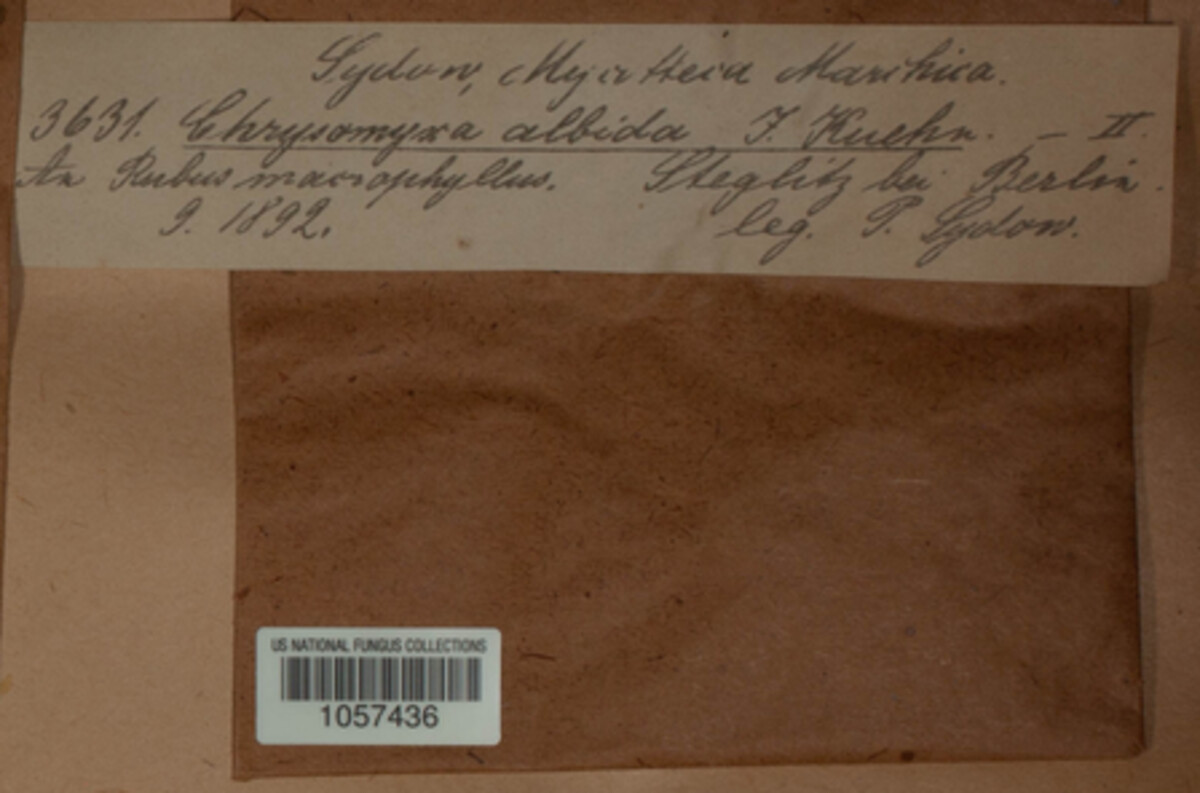 Sydow, Mycotheca Marchica.
3631. Chrysomyxa albida J. Kuehn. — II.
An Rubus macrophyllus. Steglitz bei Berlin.
9. 1892. leg. P. Sydow.
US NATIONAL FUNGUS COLLECTIONS
1057436